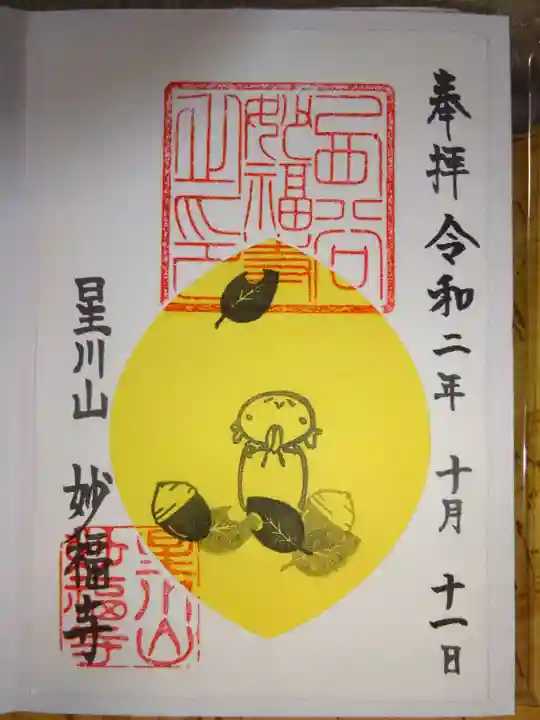 奉拝 令和二年 十月 十一日
西谷
妙福寺
之印
星川山 妙福寺
星川山
妙福寺